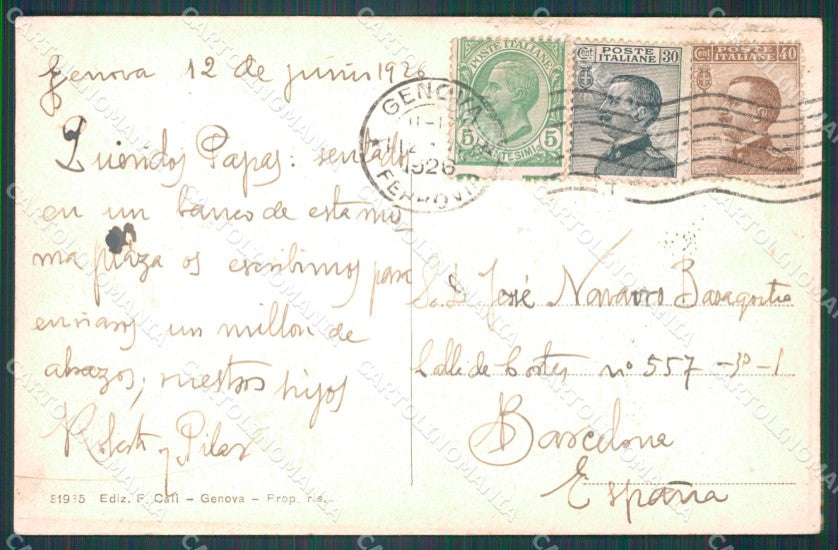 Genova 12 de junio 1926
Queridos Papas: sentados
en un banco de esta mis
ma plaza os escribimos para
enviaros un millon de
abrazos, vuestros hijos
Roberto y Pilar
51935 Ediz. F. Calì – Genova – Prop. ris.
GENOVA
1926
FERROVIA
POSTE ITALIANE
5 5
CENTESIMI
Cent POSTE ITALIANE 30
Cent POSTE ITALIANE 40
José Navarro
Calle de Cortes nº 557 - 3º - 1
Barcelona
España
CARTOLINOMANIA